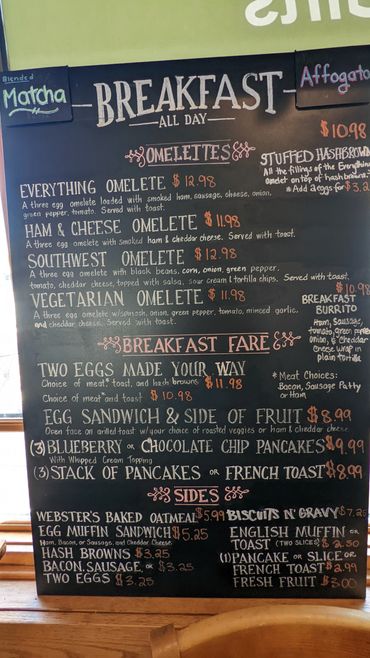 Blended
Matcha
BREAKFAST
ALL DAY
Affogato
OMELETTES
EVERYTHING OMELETE $12.98
A three egg omelete loaded with smoked ham, sausage, cheese, onion,
green pepper, tomato. Served with toast.
HAM & CHEESE OMELETE $11.98
A three egg omelete with smoked ham & cheddar cheese. Served with toast.
SOUTHWEST OMELETE $12.98
A three egg omelete with black beans, corn, onion, green pepper,
tomato, cheddar cheese, topped with salsa, sour cream & tortilla chips. Served with toast.
VEGETARIAN OMELETE $11.98
A three egg omelete w/spinach, onion, green pepper, tomato, minced garlic,
and cheddar cheese. Served with toast.
$10.98
STUFFED HASHBROWN
All the fillings of the Everything
Omelet on top of hash browns.
*Add 2 eggs for $3.2
$10.98
BREAKFAST
BURRITO
Ham, Sausage,
tomato, green pepper
onion, & Cheddar
Cheese wrap in
plain tortilla
BREAKFAST FARE
TWO EGGS MADE YOUR WAY
Choice of meat,* toast, and hash browns $11.98
Choice of meat* and toast $10.98
* Meat Choices:
Bacon, Sausage Patty
or Ham
EGG SANDWICH & SIDE OF FRUIT $8.99
Open face on grilled toast w/your choice of roasted veggies or ham & cheddar cheese
(3) BLUEBERRY OR CHOCOLATE CHIP PANCAKES $9.99
With Whipped Cream Topping
(3) STACK OF PANCAKES OR FRENCH TOAST $8.99
SIDES
WEBSTER'S BAKED OATMEAL $5.99
EGG MUFFIN SANDWICH $5.25
Ham, Bacon, or Sausage, and Cheddar Cheese
HASH BROWNS $3.25
BACON, SAUSAGE, OR $3.25
TWO EGGS $3.25
BISCUITS N' GRAVY $7.2
ENGLISH MUFFIN OR
TOAST (TWO SLICES) $2.50
(1) PANCAKE OR SLICE OR
FRENCH TOAST $2.99
FRESH FRUIT $3.00